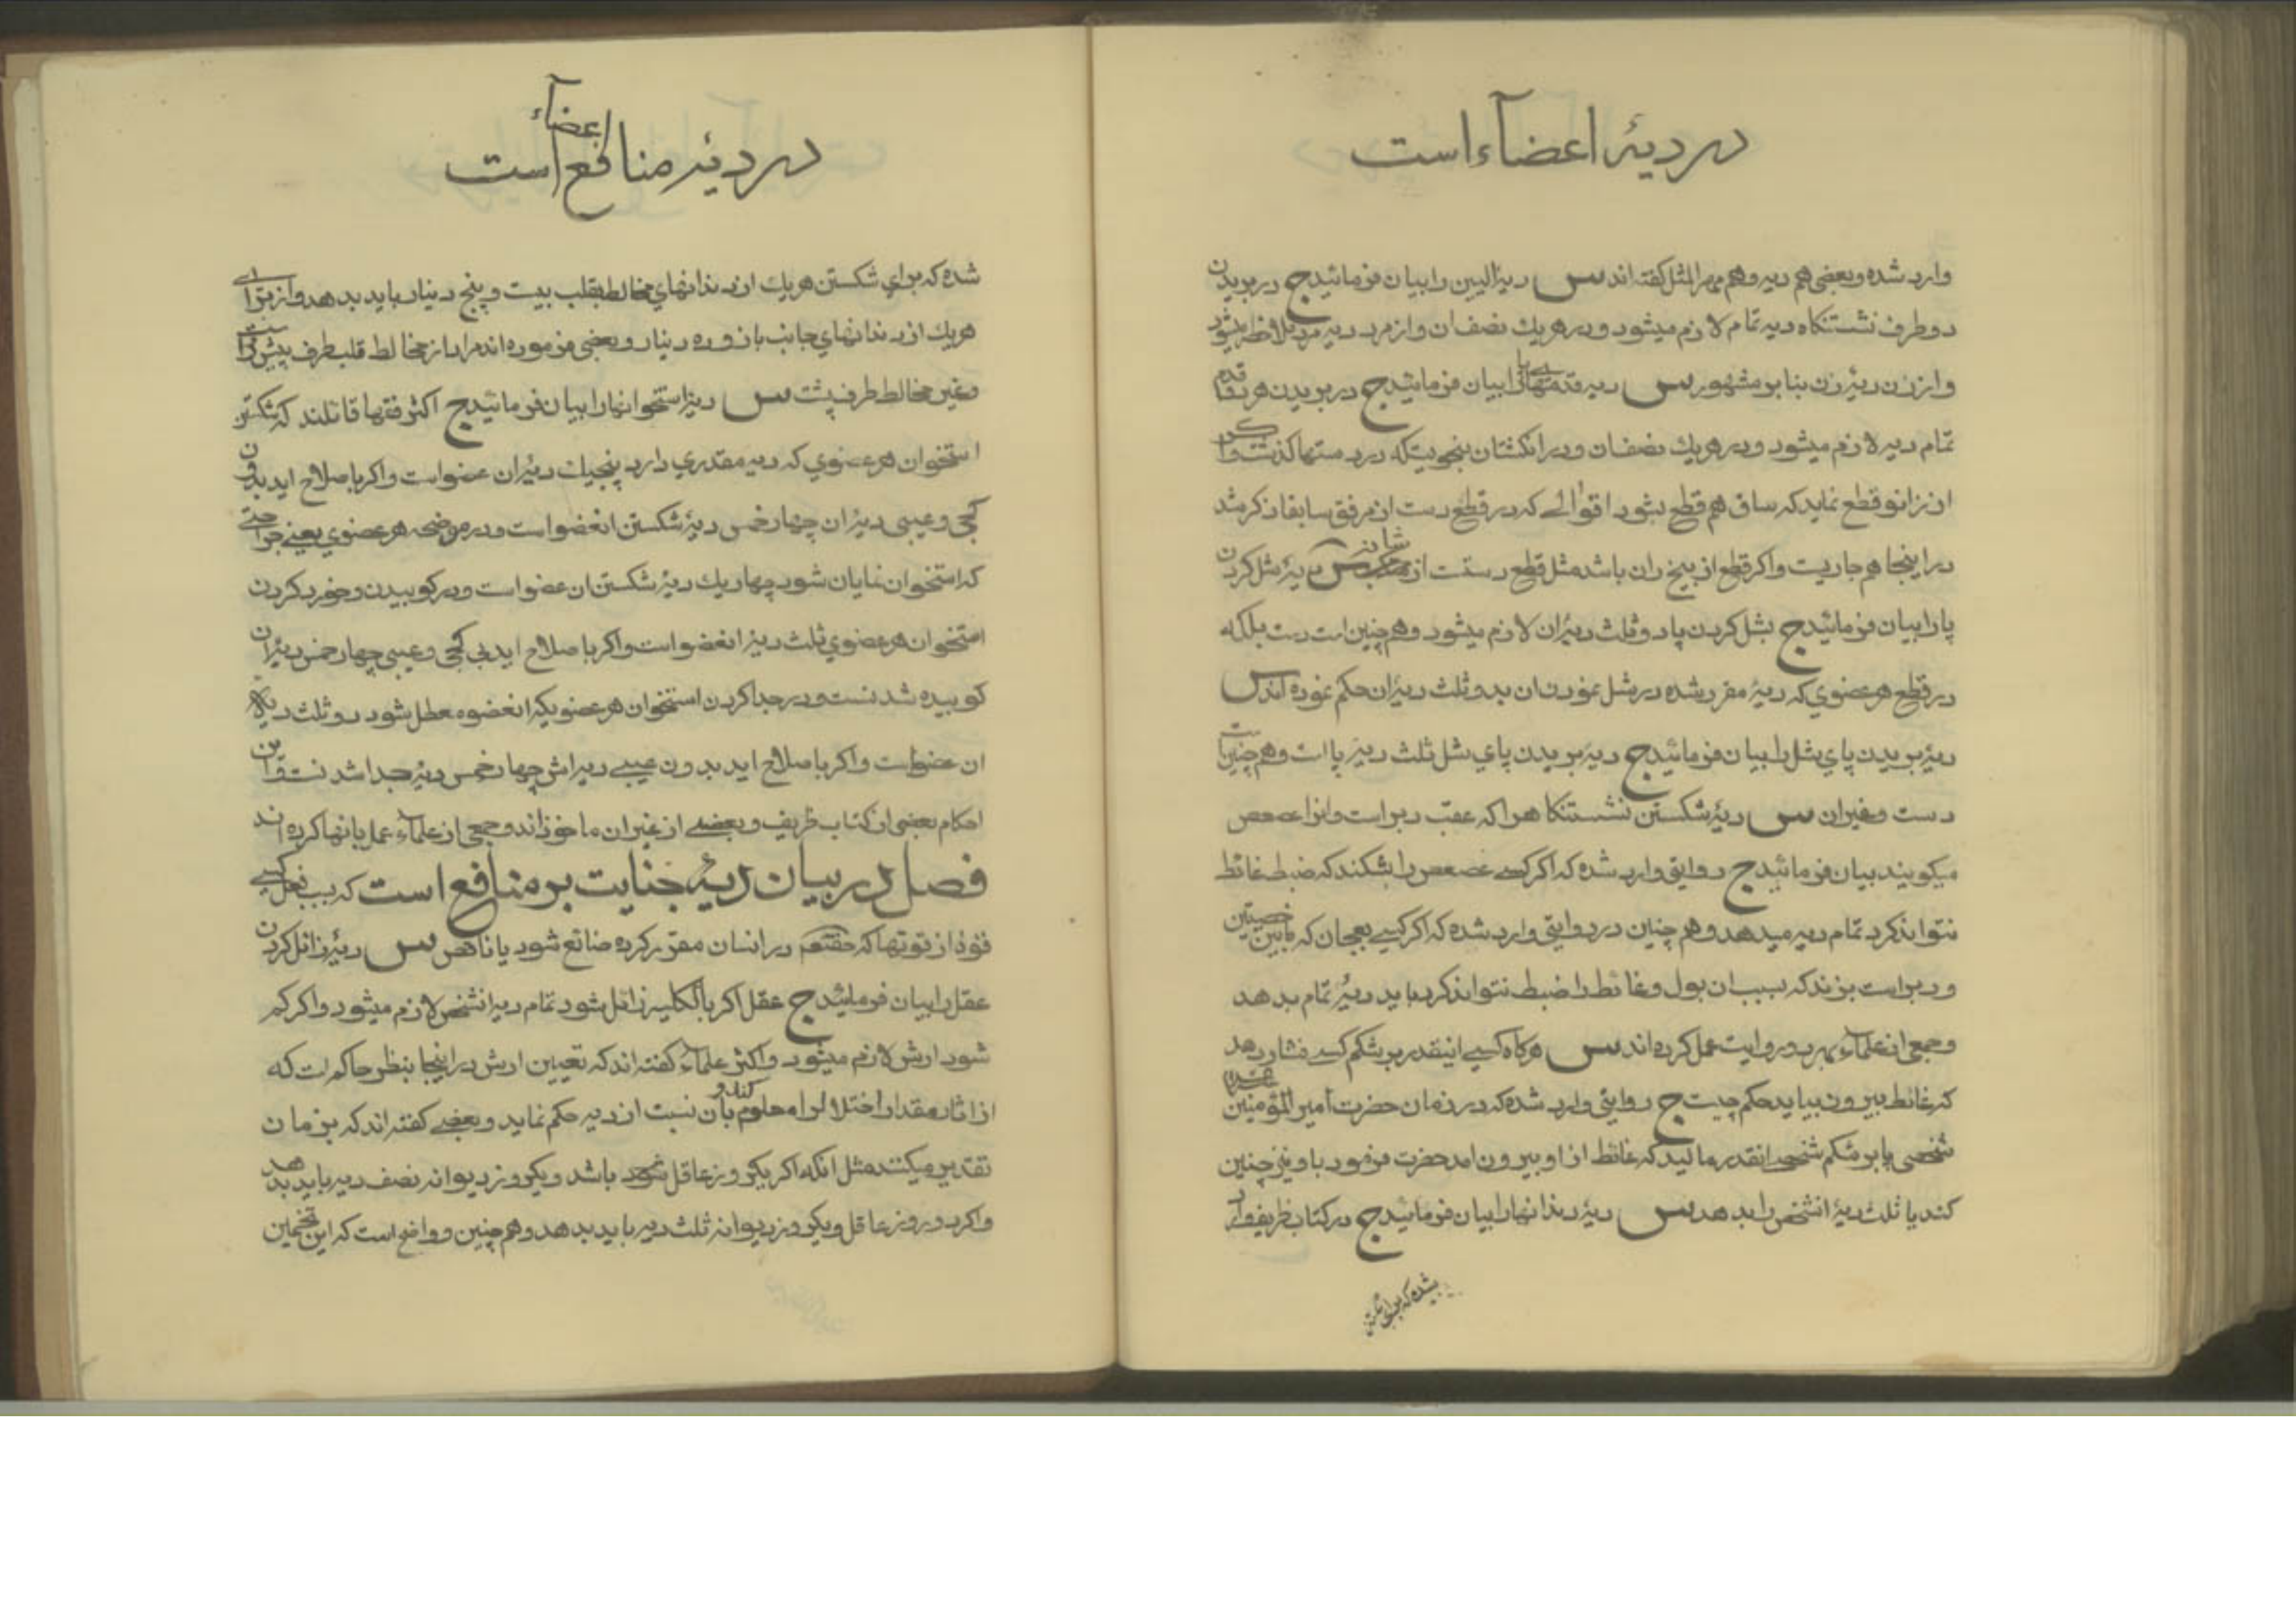 در دیۀ اعضآء است
وارد شده و بعضی هم دیه و هم مهر المثل گفته‌اند س دیۀ الیین را بیان فرمائید ج در بریدن
دو طرف نشستنگاه دیه تمام لازم میشود و در هر یك نصف ان و از مرد دیه مرد ملاحظه میشود
و از زن دیۀ زن بنا بر مشهور س دیه قدمهای پا را بیان فرمائید ج در بریدن هر دو قدم
تمام دیه لازم میشود و در هر یك نصف ان و در انگشتان بنحویتکه در دستها گذشت و اگر
از زانو قطع نماید که ساق هم قطع بشود اقوالے که در قطع دست از مرفق سابقا ذکر شد
در اینجا هم جاریست و اگر قطع از بیخ ران باشد مثل قطع دستت از شانه س دیۀ شل کردن
پا را بیان فرمائید ج بشل کردن پا دو ثلث دیۀ ان لازم میشود و هم چنین است دست بلکه
در قطع هر عضوي که دیۀ مقرر شده در شل نمودن ان بدو ثلث دیۀ ان حکم نموده اند س
دیۀ بریدن پاي شل را بیان فرمائید ج دیۀ بریدن پاي شل ثلث دیۀ پا است و هم چنین است
دست و غیر ان س دیۀ شکستن نشستنگاه را که عقب دبر است و انرا عصعص
میگویند بیان فرمائید ج روایتی وارد شده که اگر کسے عصعص را بشکند که ضبط غائط
نتواند کرد تمام دیه میدهد و هم چنین در روایتی وارد شده که اگر کسے بعجان که مابین خصیتین
و دبر است بزند که بسبب ان بول و غائط را ضبط نتواند کرد باید دیۀ تمام بدهد
و جمعی از علماء بهر دو روایت عمل کرده اند س هرگاه کسے انیقدر بر شکم کسے فشار دهد
که غائط بیرون بیاید حکم چیست ج روایتی وارد شده که در زمان حضرت أمیر المؤمنین
شخصی پا بر شکم شخصے انقدر مالید که غائط از او بیرون امد حضرت فرمود با و نیز چنین
کند یا ثلث دیۀ انشخص را بدهد س دیۀ دندانها را بیان فرمائید ج در کتاب ظریف وارد
شده که برای شکستن
در دیۀ منافع اعضآء است
شده که براي شکستن هر یك از دندانهاي مخالط بقلب بیست و پنج دینار باید بدهد و از برای
هر یك از دندانهاي جانب بازو ده دینار و بعضی فرموده اند مراد از مخالط قلب طرف پیش است
و غیر مخالط طرف پشت س دیۀ استخوانها را بیان فرمائید ج اکثر فقها قائلند که شکستن
استخوان هر عضوي که دیه مقدري دارد پنجیك دیۀ ان عضو است و اگر باصلاح اید بدون
کجی و عیبی دیۀ ان چهار خمس دیۀ شکستن انعضو است و در موضحه هر عضوي یعنے جراحتے
که استخوان نمایان شود چهار یك دیۀ شکستن ان عضو است و در کوبیدن و خورد کردن
استخوان هر عضوي ثلث دیۀ انعضو است و اگر باصلاح اید بی کجی و عیبی چهار خمس دیۀ ان
کوبیده شدنست و در جدا کردن استخوان هر عضویکه انعضو معطل بشود دو ثلث دیۀ
ان عضو است و اگر باصلاح اید بدون عیبے دیه اش چهار خمس دیۀ جدا شدنست و این
احکام بعضی از کتاب ظریف و بعضے از غیر ان ماخوذ اند و جمعی از علماء عمل بانها کرده اند
فصل در بیان دیۀ جنایت بر منافع است که بسبب فعل کسے
قوۀ از قوتها که حقتعه در انسان مقرر کرده ضائع شود یا ناقص س دیۀ زائل کردن
عقل را بیان فرمائید ج عقل اگر بالکلیه زائل شود تمام دیه انشخص لازم میشود و اگر کم
شود ارش لازم میشود و اکثر علماء گفته اند که تعیین ارش در اینجا بنظر حاکم است که
از اثار مقدار اختلال را معلوم کند و بان نسبت از دیه حکم نماید و بعضے گفته اند که بزمان
تقدیر میکنند مثل انکه اگر یکروز عاقل باشد و یکروز دیوانه نصف دیه باید بدهد
و اگر دو روز عاقل و یکروز دیوانه ثلث دیه باید بدهد و هم چنین و واضح است که این تخمین